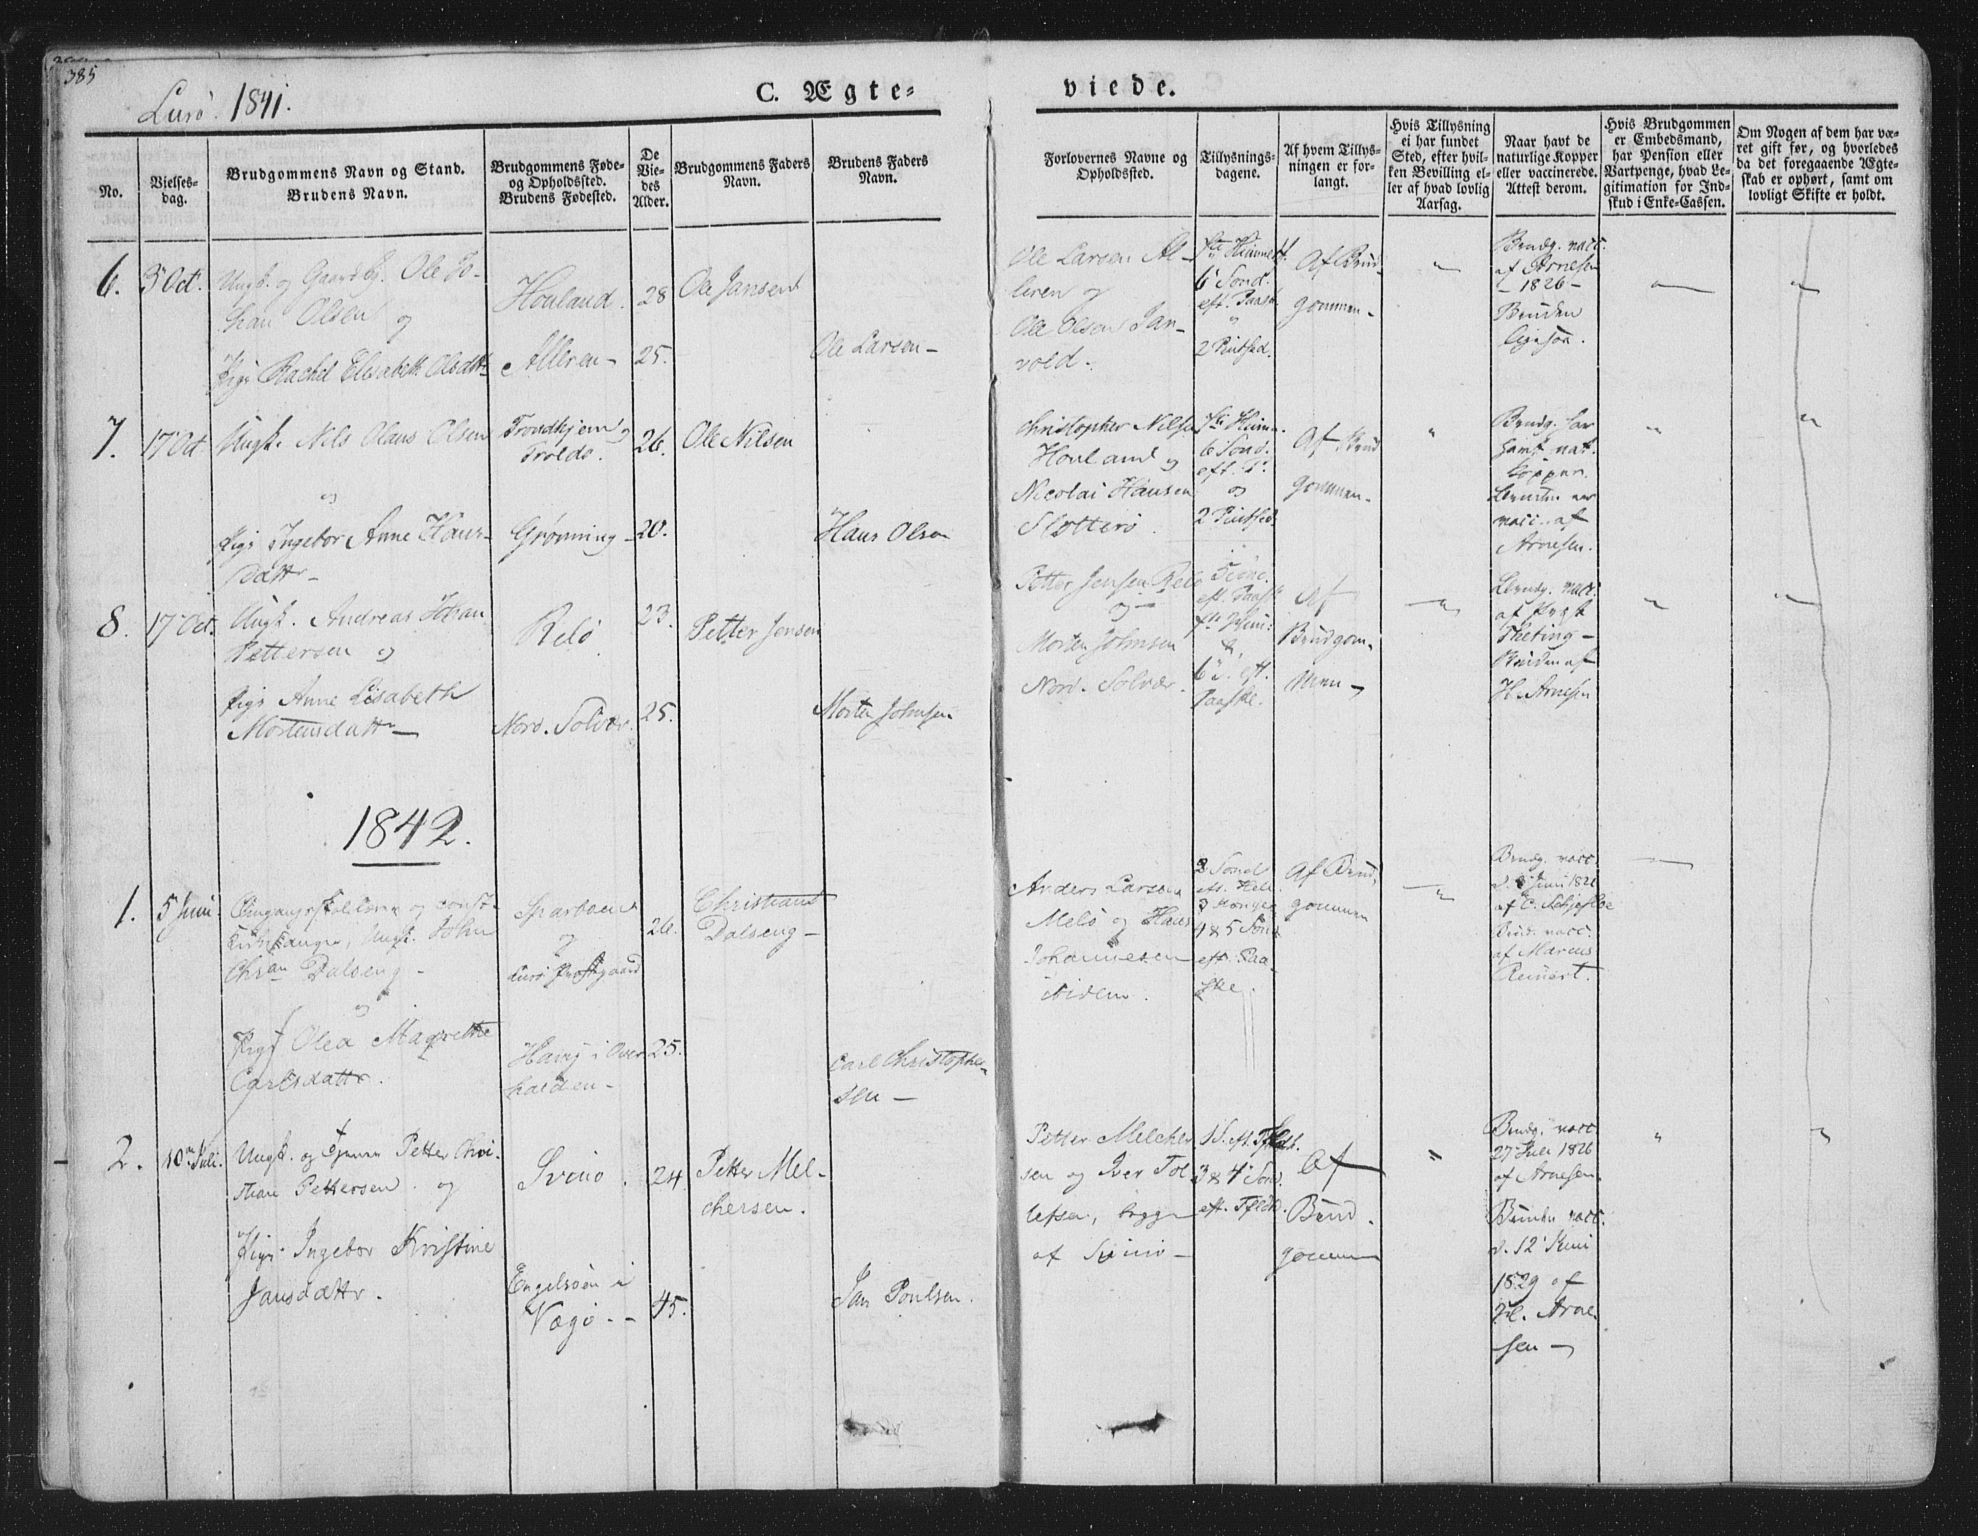 385
Lurö 1841.
C. Ægte-
viede.
No.
Vielses-
dag.
Brudgommens Navn og Stand.
Brudens Navn.
Brudgommens Føde-
og Opholdssted.
Brudens Fødested.
De
Vie-
des
Alder.
Brudgommens Faders
Navn.
Brudens Faders
Navn.
Forlovernes Navne og
Opholdssted.
Tillysnings-
dagene.
Af hvem Tillys-
ningen er for-
langt.
Hvis Tillysning
ei har fundet
Sted, efter hvil-
ken Bevilling el-
ler af hvad lovlig
Aarsag.
Naar havt de
naturlige Kopper
eller vaccinerede.
Attest derom.
Hvis Brudgommen
er Embedsmand,
har Pension eller
Vartpenge, hvad Le-
gitimation for Ind-
skud i Enke-Cassen.
Om Nogen af dem har væ-
ret gift før, og hvorledes
da det foregaaende Ægte-
skab er ophørt, samt om
lovligt Skifte er holdt.
6.
3 Oct.
Ungk. og Gaardbg. Ole Jo-
han Olsen og
Pige Rachel Elisabeth Olsdattr
Houland.
Alleren-
28
25.
Ole Jansen
Ole Larsen-
Ole Larsen Al-
leren og
Ole Olsen Jan-
vold.
6 Sond.
eft. Paask.
2 Pintsed.
Af Brud-
gommen-
Brudg. vacc.
af Arnesen
- 1826 -
Bruden
ligesaa.
7.
17 Oct
Ungk. Nils Olaus Olsen
og
Pige Ingebor Anne Hans-
dattr-
Trondhjem og
Troldö.
Grønning-
26.
20.
Ole Nilsen
Hans Olsen
Christopher Nilsen
Houland og
Nicolai Hansen
Slotterö.
6 Sond.
eft. P.
og
2 Pintsed.
Af Brud
gommen-
Brudg. har
havt nat.
Kopper
Bruden er
vacc. af
Arnesen.
8.
17 Oct.
Ungk. Andreas Johan
Pettersen og
Pige Anne Lisabeth
Mortensdattr-
Relö
Nord. Solvær.
23.
25.
Petter Jensen
Morten Johnsen
Petter Jensen Relö
og
Morten Johnsen
Nord. Solvær.
eft. Paask.
6 S. eft.
Paaske.
Af
Brudgom-
men-
Brudg. vacc.
af
Bruden af
H. Arnesen
1842.
1.
5 Juni.
Omgangsskolelærer og const.
Kirkesanger, Ungk. John
Chran Dalseng-
og
Pige Olea Magrethe
Carlsdattr.
Sparboen
og
Lurö Præstgaard
Havig i Over-
halden-
26.
25.
Christian
Dalseng-
Carl Christophe-
sen-
Anders Larsen
Melö og Hans
Johannesen
ibidem.
3 Sond
eft. Hell.
3 Konger
4 & 5 Sond
eft. Paa-
ske.
Af Brud-
gommen
Brudg. vacc.
d. Juni 1821
af C.
Brud. vacc.
af Marcus
Reinert.
2.
10 Juli.
Ungk. og Tjener Petter Chri-
stian Pettersen og
Pige Ingebor Kristine
Jansdattr.
Svinö.
Engelsöen i
Vægö.-
24
45.
Petter Mel-
chersen.
Jan Poulsen.
Petter Melcher
sen og Iver Tol
lefsen, begge
af Svinö-
3 & 4 Sond.
Af
Brud-
gommen
Brudg. vacc.
27 Juli 1826
af Arnesen.
Bruden vacc.
d. 12 Juni
1829 af
H. Arne-
sen-